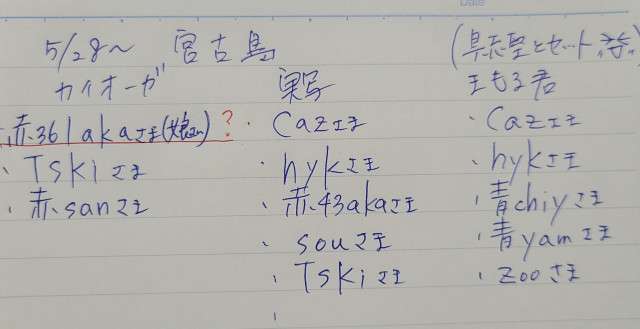 Date
5/28～ 宮古島
カイオーガ
赤361akaさま(娘さん)?
・Tskiさま
・赤sanさま
実写
・Cazさま
・hykさま
・赤43akaさま
・souさま
・Tskiさま
・
とセット
まもる君
・Cazさま
・hykさま
・青chiyさま
・青yamさま
・zooさま